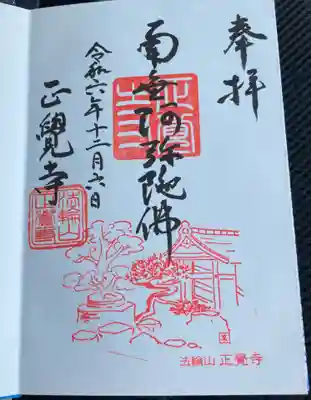 奉拝
南無阿弥陀佛
令和六年十二月六日
正覺寺
法輪山 正覺寺